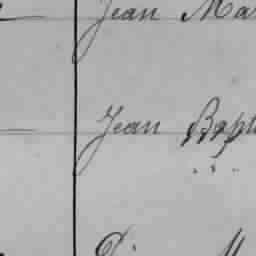 Jean Ma
Jean Bapt